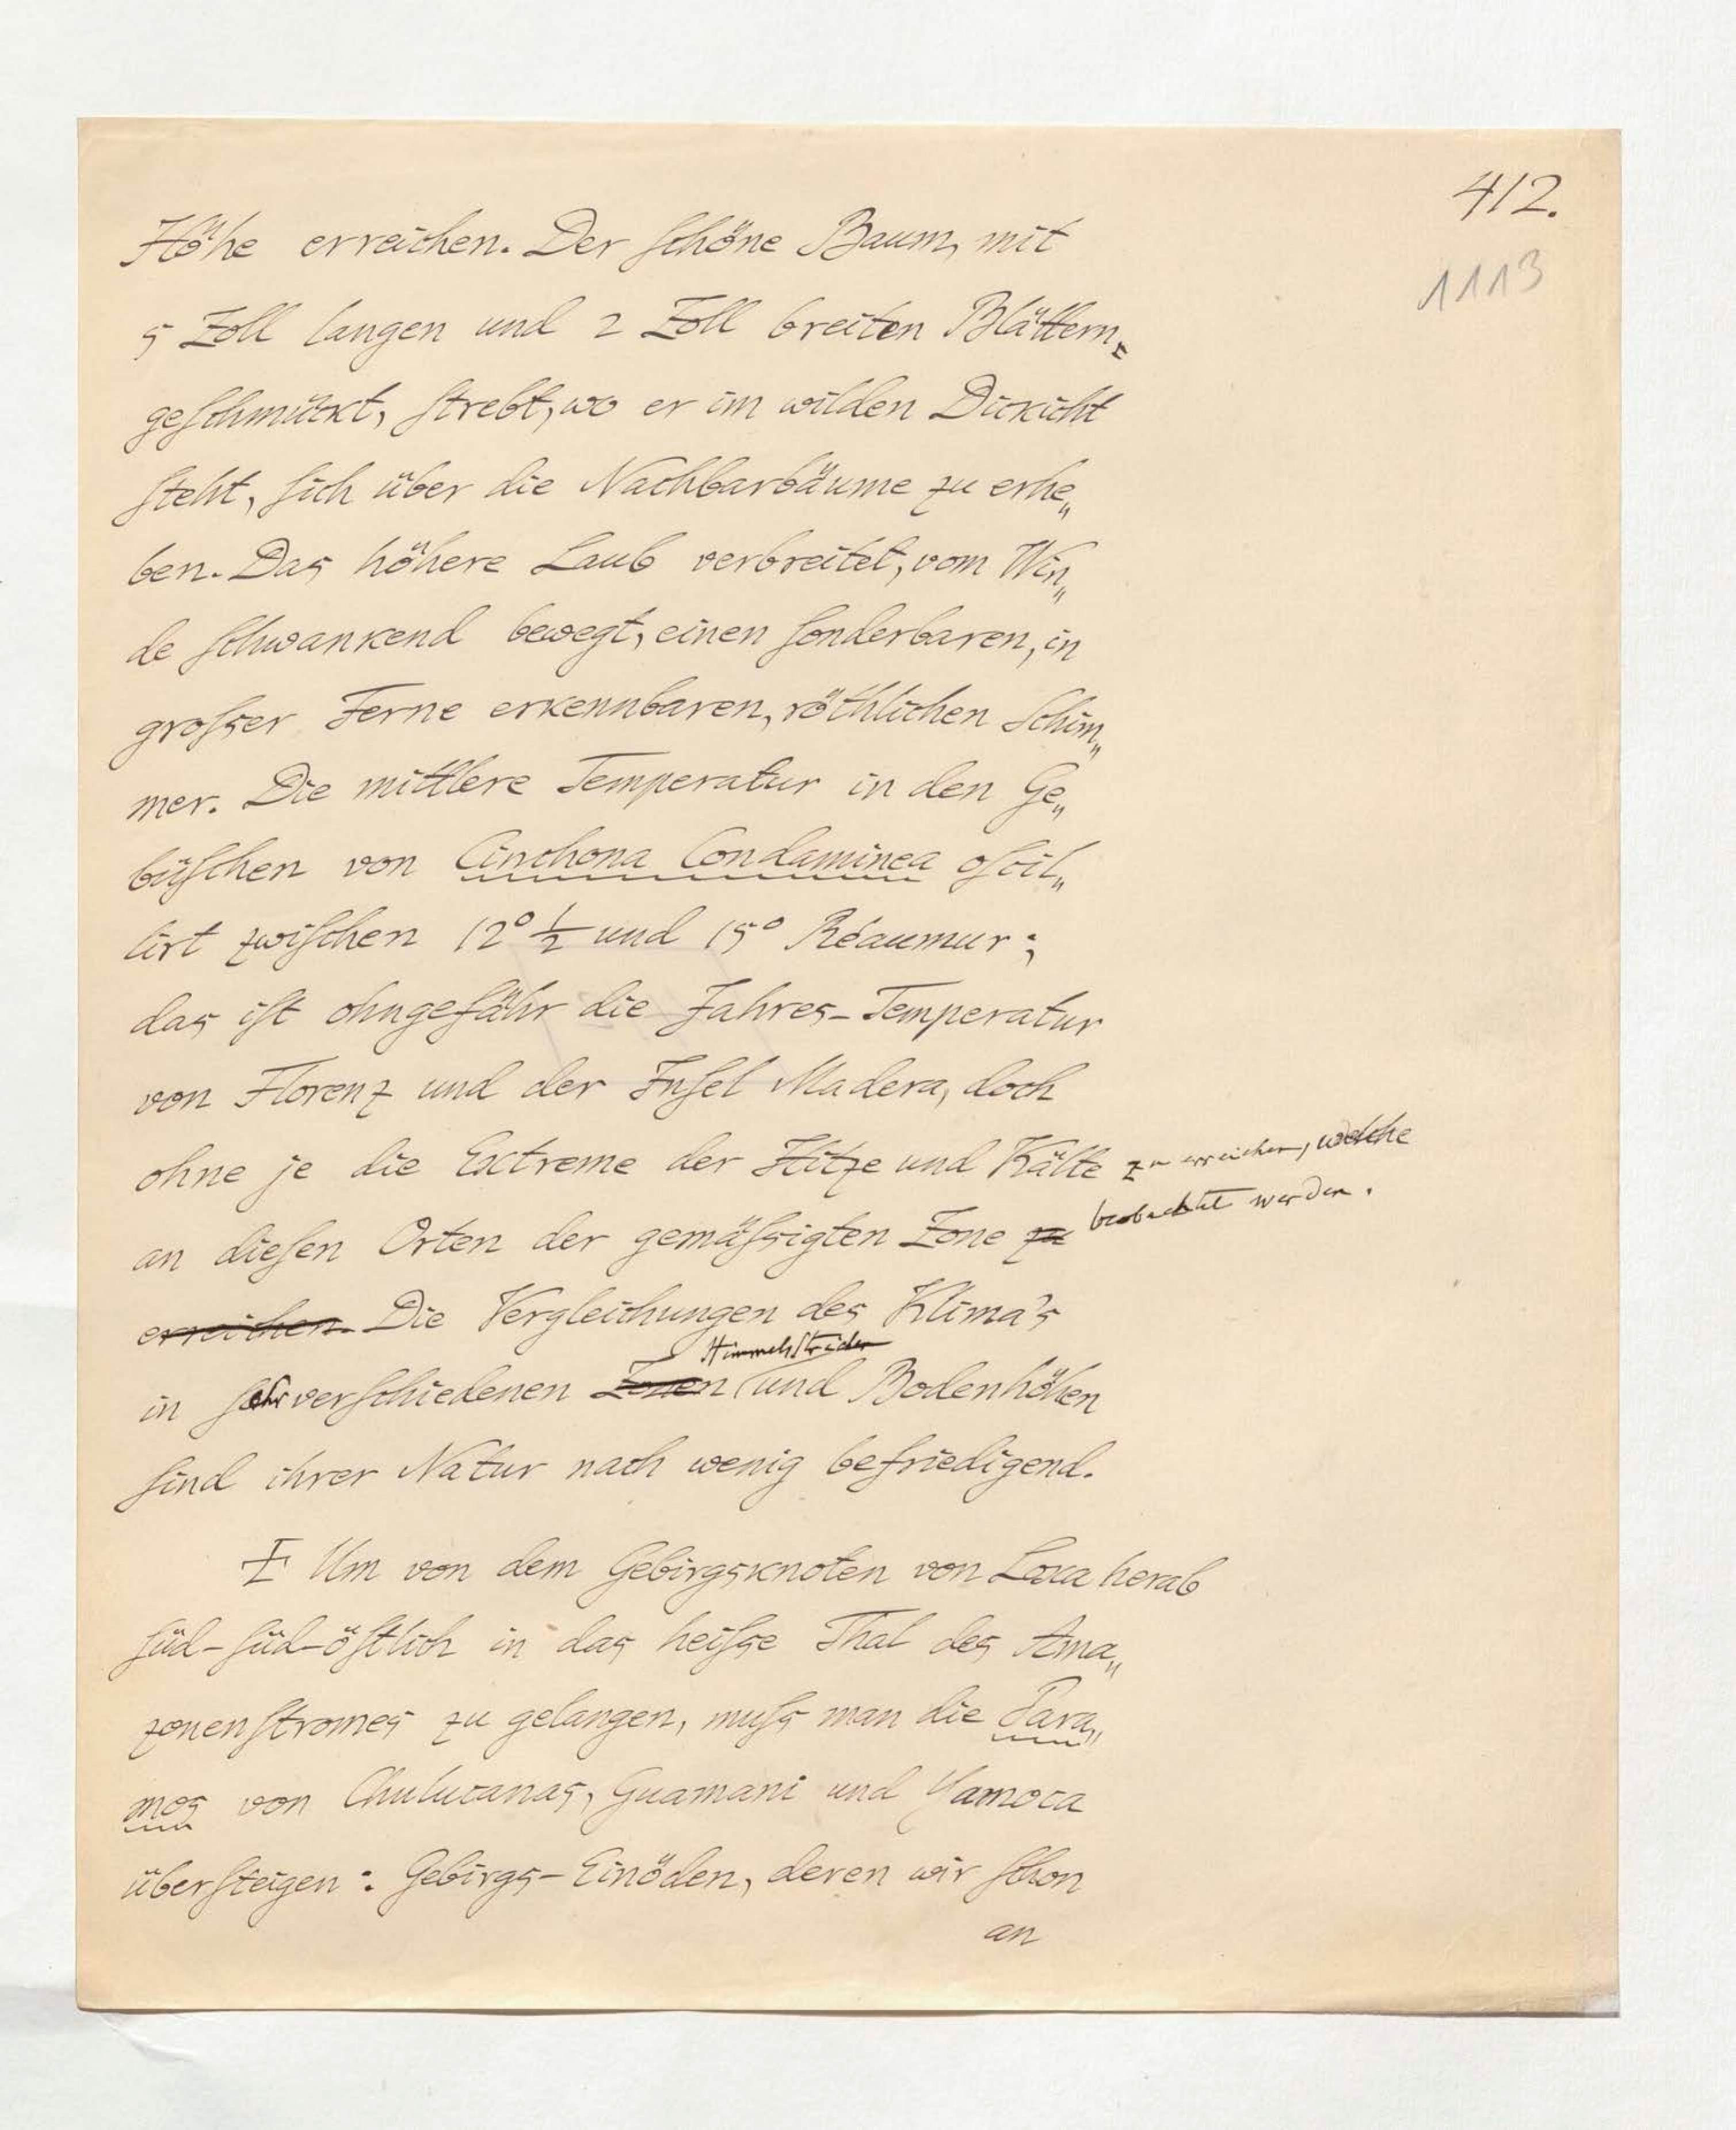 412.
1113
Höhe erreichen. Der schöne Baum, mit
5 Zoll langen und 2 Zoll breiten Blättern
geschmückt, strebt, wo er im wilden Dickicht
steht, sich über die Nachbarbäume zu erhe„
ben. Das höhere Laub verbreitet, vom Win„
de schwankend bewegt, einen sonderbaren, in
grosser Ferne erkennbaren, röthlichen Schim„
mer. Die mittlere Temperatur in den Ge„
büschen von Cinchona Condaminea oscil„
lirt zwischen 12° ½ und 15° Réaumur;
das ist ohngefähr die Jahres-Temperatur
von Florenz und der Insel Madera, doch
ohne je die Extreme der Hitze und Kälte zu erreichen, welche
an diesen Orten der gemässigten Zone zu beobachtet werden.
erreichen. Die Vergleichungen des Klima's
Himmelsstriche
in sehr verschiedenen Zonen und Bodenhöhen
sind ihrer Natur nach wenig befriedigend.
Um von dem Gebirgsknoten von Loxa herab
süd-süd-östlich in das heisse Thal des Ama„
zonenstromes zu gelangen, muss man die Para„
mos von Chulucanas, Guamani und Yamoca
übersteigen: Gebirgs-Einöden, deren wir schon
an